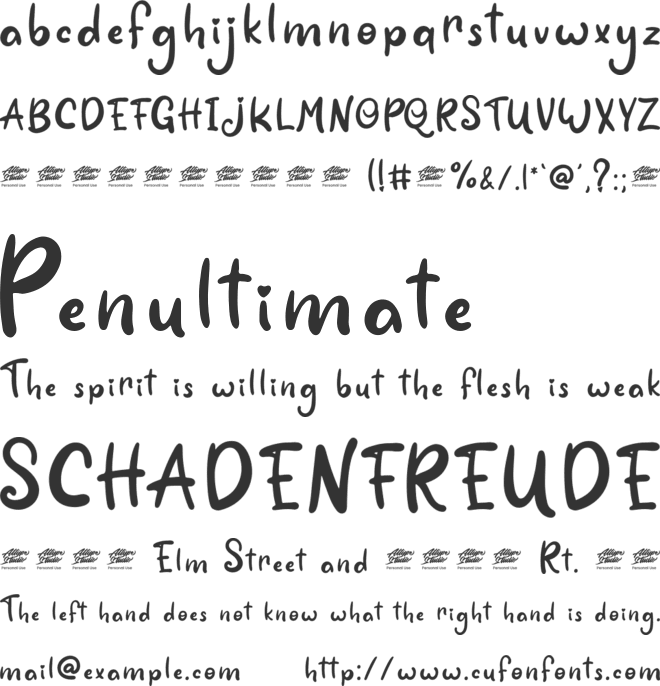 abcdefghijklmnopqrstuvwxyz
ABCDEFGHIJKLMNOPQRSTUVWXYZ
Allyn Studio Personal Use Allyn Studio Personal Use Allyn Studio Personal Use Allyn Studio Personal Use Allyn Studio Personal Use Allyn Studio Personal Use Allyn Studio Personal Use Allyn Studio Personal Use Allyn Studio Personal Use Allyn Studio Personal Use (!!# Allyn Studio Personal Use %&/.|*`@',?:; Allyn Studio Personal Use
Penultimate
The spirit is willing but the flesh is weak
SCHADENFREUDE
Allyn Studio Personal Use Allyn Studio Personal Use Allyn Studio Personal Use Allyn Studio Personal Use Elm Street and Allyn Studio Personal Use Allyn Studio Personal Use Allyn Studio Personal Use Allyn Studio Personal Use Rt. Allyn Studio Personal Use Allyn Studio Personal Use
The left hand does not know what the right hand is doing.
mail@example.com http://www.cufonfonts.com